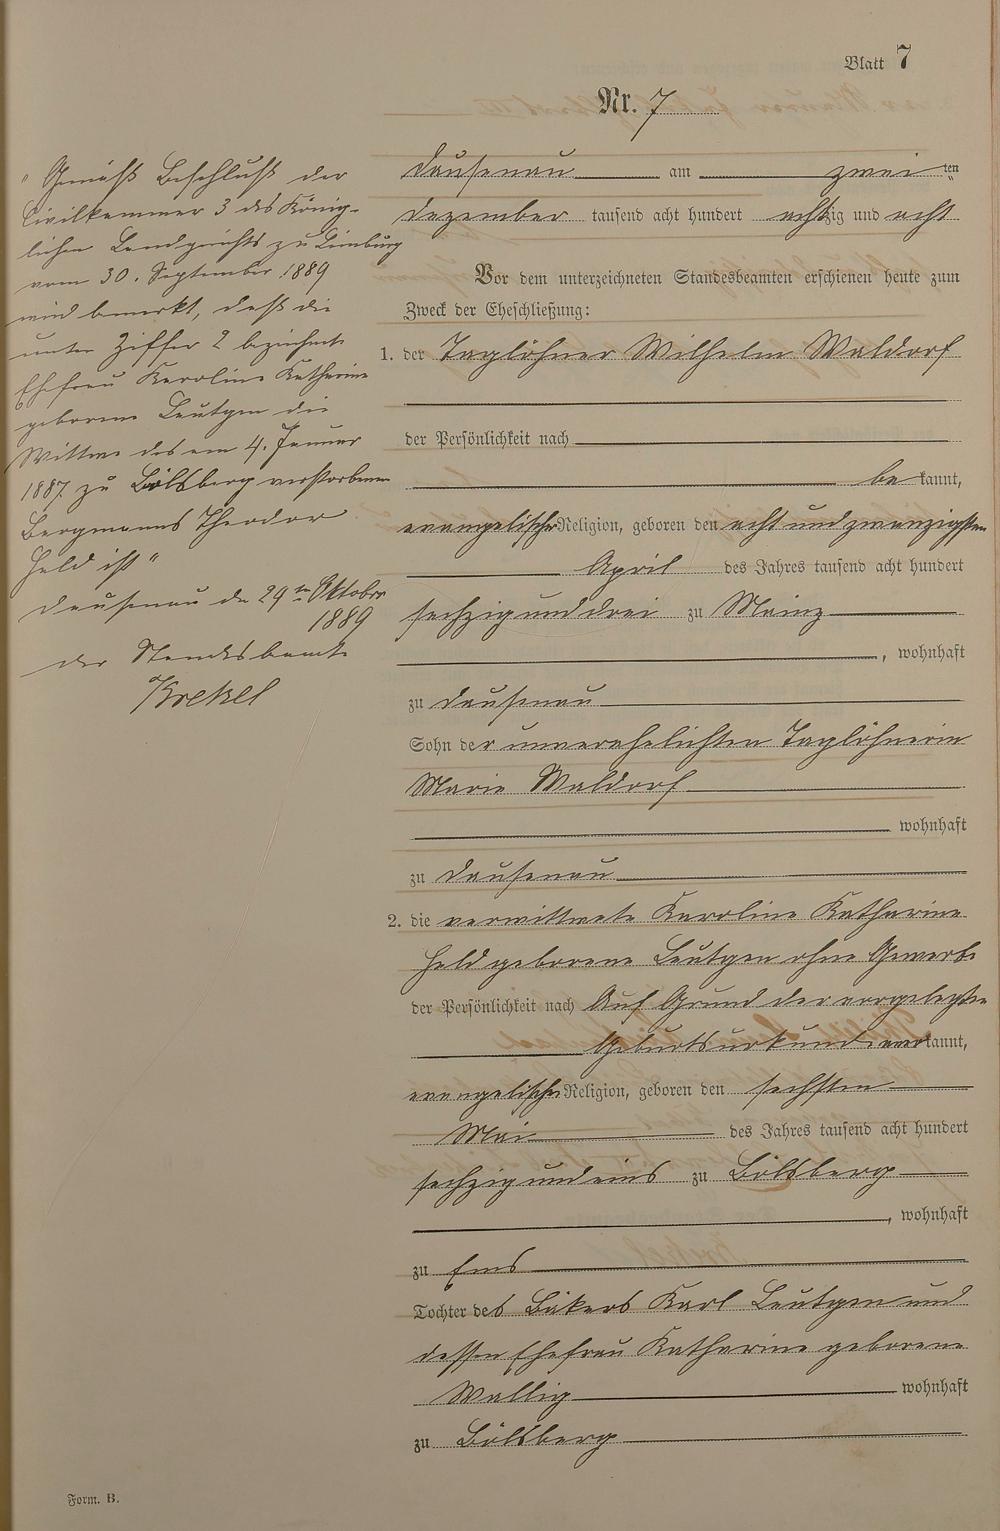 Blatt 7
Nr. 7
Dausenau am zwei ten
Dezember tausend acht hundert achtzig und acht
Vor dem unterzeichneten Standesbeamten erschienen heute zum
Zweck der Eheschließung:
1. der Taglöhner Wilhelm Waldorf
der Persönlichkeit nach
bekannt,
evangelischer Religion, geboren den acht und zwanzigsten
April des Jahres tausend acht hundert
sechzig und drei zu Mainz
, wohnhaft
zu Dausenau
Sohn der unverehelichten Taglöhnerin
Marie Waldorf
wohnhaft
zu Dausenau
2. die verwittwete Karoline Katharine
Held geborene Leutgen ohne Gewerbe
der Persönlichkeit nach Auf Grund der vorgelegten
Geburtsurkunde anerkannt,
evangelischer Religion, geboren den sechsten
Mai des Jahres tausend acht hundert
sechzig und eins zu Bölsberg
, wohnhaft
zu Ems
Tochter des Bäkers Karl Leutgen und
dessen Ehefrau Katharine geborene
Wallig wohnhaft
zu Bölsberg
"Gemäß Beschluß der
Civilkammer 3 des König-
lichen Landgerichts zu Limburg
vom 30. September 1889
wird bemerkt, daß die
unter Ziffer 2 bezeichnete
Ehefrau Karoline Katharine
geborene Leutgen die
Wittwe des am 4. Januar
1887 zu Bölsberg verstorbenen
Bergmanns Theodor
Held ist"
Dausenau den 29ten Oktober
1889
der Standesbeamte
Krekel
Form. B.